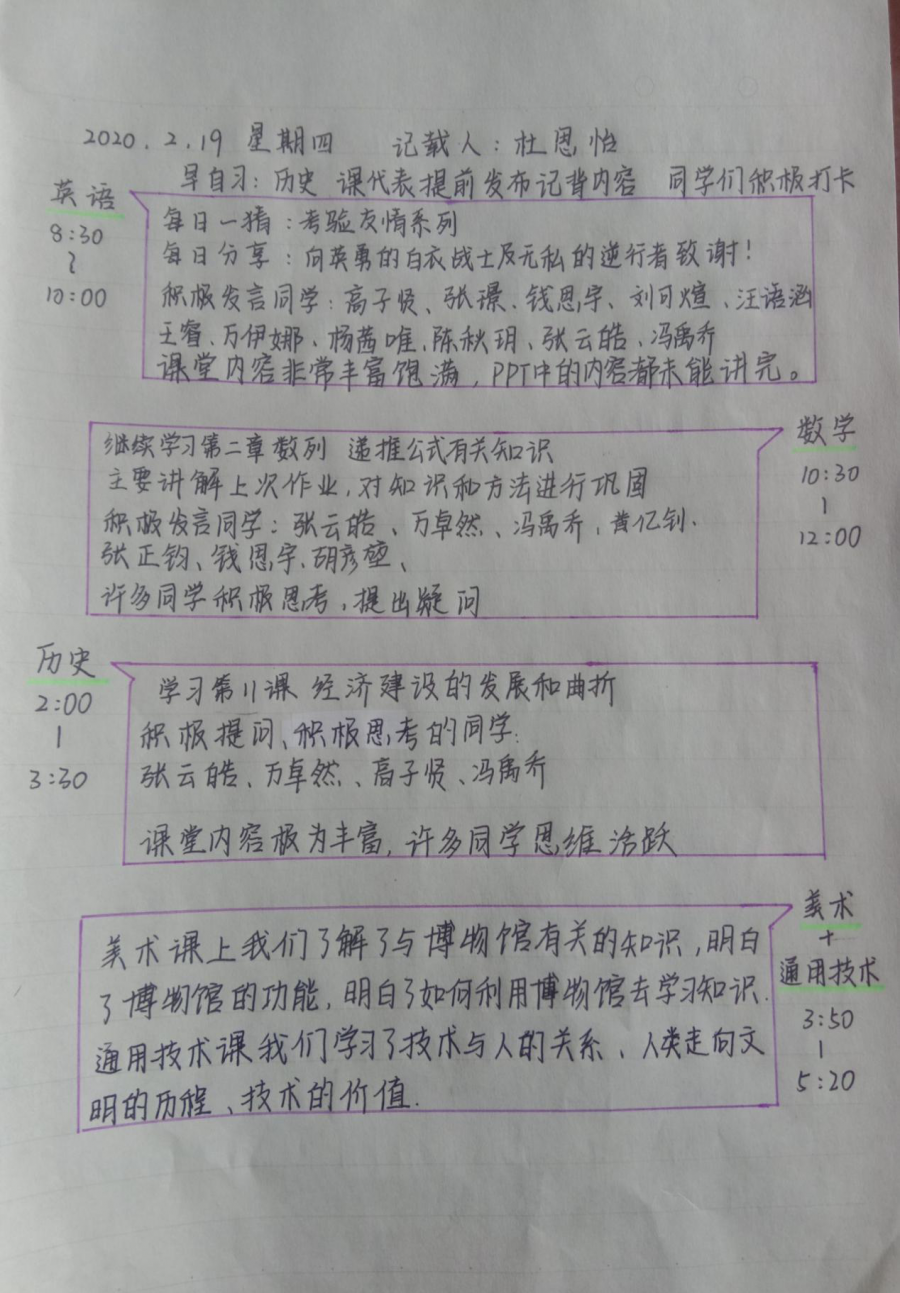 2020.2.19 星期四 记载人：杜恩怡
早自习：历史 课代表提前发布记背内容 同学们积极打卡
英语
8:30
~
10:00
每日一猜：考验友情系列
每日分享：向英勇的白衣战士及无私的逆行者致谢！
积极发言同学：高子贤、张璟、钱恩宇、刘可煊、汪语涵
王睿、万伊娜、杨茜唯、陈秋玥、张云皓、冯禹乔
课堂内容非常丰富饱满，PPT中的内容都未能讲完。
数学
10:30
|
12:00
继续学习第二章数列 递推公式有关知识
主要讲解上次作业，对知识和方法进行巩固
积极发言同学：张云皓、万卓然、冯禹乔、黄亿钊、
张正钧、钱恩宇、胡彦堃、
许多同学积极思考，提出疑问
历史
2:00
|
3:30
学习第11课 经济建设的发展和曲折
积极提问、积极思考的同学：
张云皓、万卓然、高子贤、冯禹乔
课堂内容极为丰富，许多同学思维活跃
美术
+
通用技术
3:50
|
5:20
美术课上我们了解了与博物馆有关的知识，明白
了博物馆的功能，明白了如何利用博物馆去学习知识.
通用技术课我们学习了技术与人的关系、人类走向文
明的历程、技术的价值.